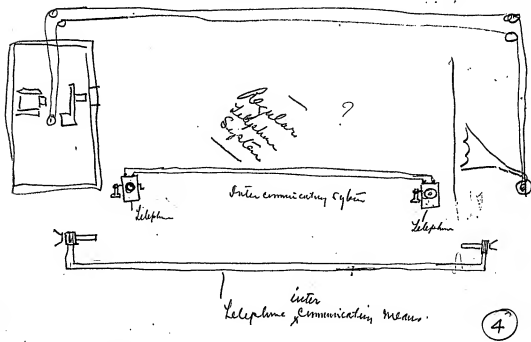 Regular
Telephone
System
?
Inter communicating system
Telephone
Telephone
Telephone inter communicating means.
4